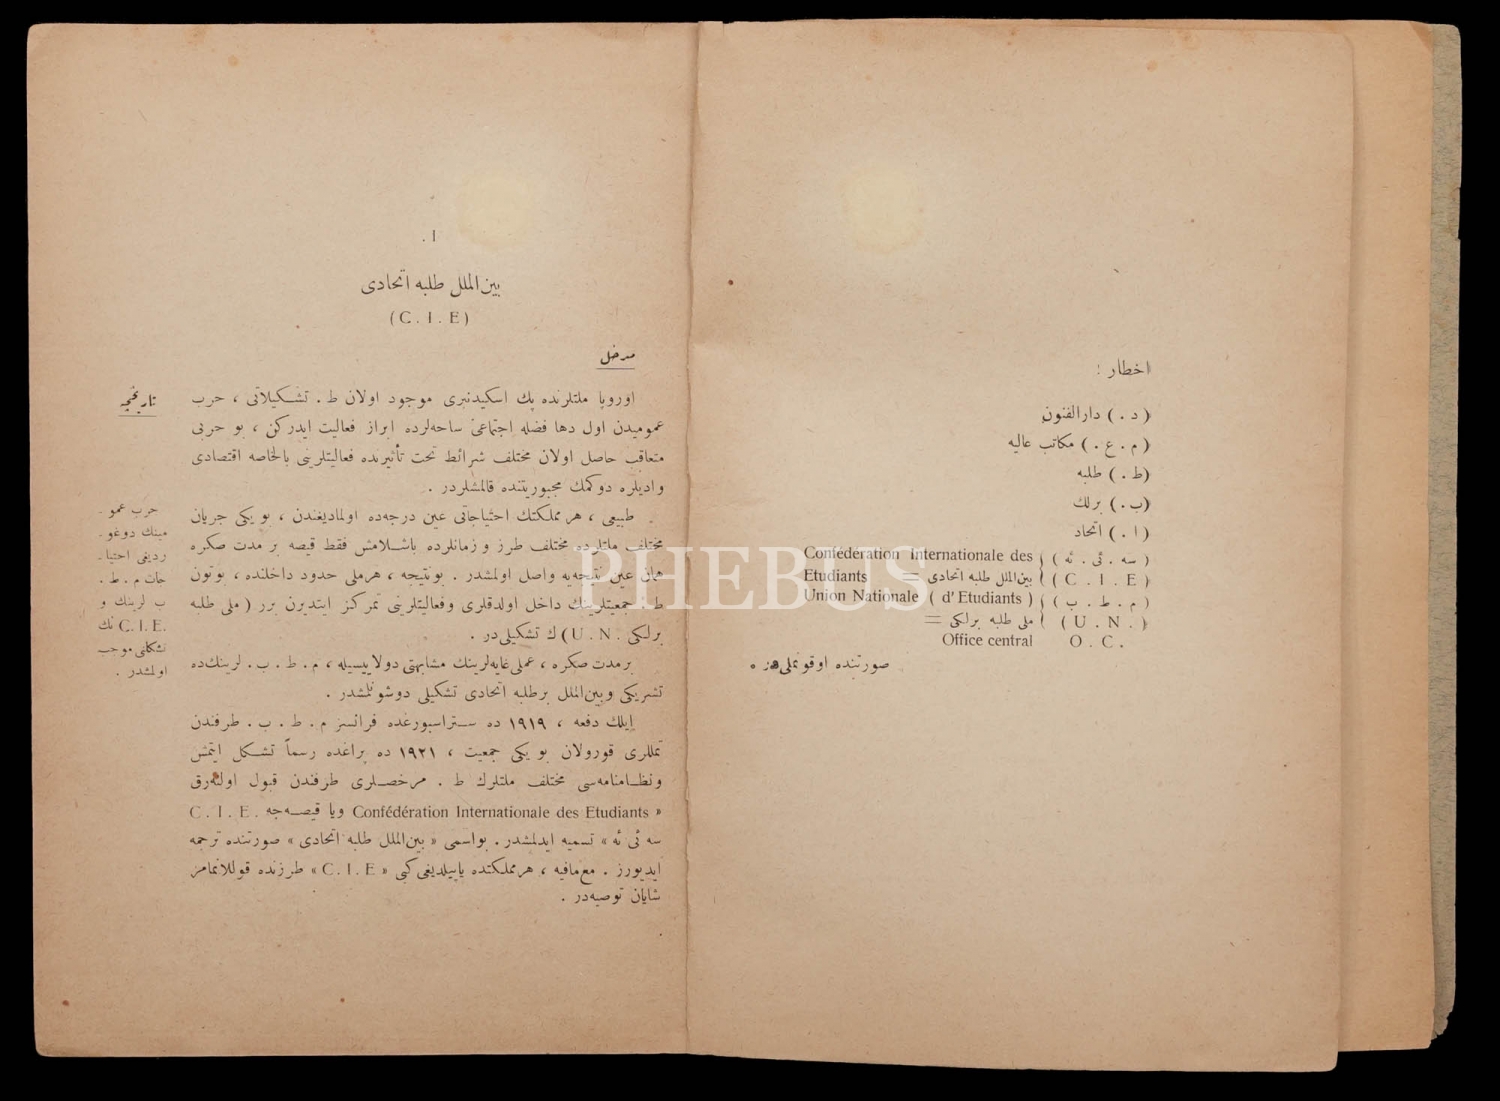 اخطار :
(د .) دارالفنون
(م . ع .) مكاتب عاليه
(ط .) طلبه
(ب .) برلك
(ا .) اتحاد
(سه . ئى . ئه) Confédération Internationale des
(C . I . E) بين الملل طلبه اتحادى = Etudiants
(م . ط . ب) Union Nationale ( d'Etudiants )
(U . N.) ملى طلبه برلكى =
O . C. Office central
صورتنده اوقونملى در .
١ .
بين الملل طلبه اتحادى
(C . I . E)
مدخل
تاريخچه
اوروپا ملتلرنده پك اسكيدنبرى موجود اولان ط . تشكيلاتى ، حرب
عموميدن اول دها فضله اجتماعى ساحه‌لرده ابراز فعاليت ايدركن ، بو حربى
متعاقب حاصل اولان مختلف شرائط تحت تأثيرنده فعاليتلرينى بالخاصه اقتصادى
واديلره دوكمك مجبوريتنده قالمشلردر .
طبيعى ، هر مملكتك احتياجاتى عين درجه‌ده اولماديغندن ، بو يكى جريان
مختلف ملتلرده مختلف طرز و زمانلرده باشلامش فقط قيصه بر مدت صكره
همان عين نتيجه‌يه واصل اولمشدر . بو نتيجه ، هر ملى حدود داخلنده ، بوتون
ط . جمعيتلرينك داخل اولدقلرى و فعاليتلرينى تمركز ايتديرن برر ( ملى طلبه
برلكى . U . N) ك تشكيلى در .
حرب عمو -
مينك دوغو -
رديغى احتيا -
جات م . ط .
ب لرينك و
C.I.E. نك
تشكلنى موجب
اولمشدر .
بر مدت صكره ، عملى غايه‌لرينك مشابهتى دولاييسيله ، م . ط . ب . لرينك‌ده
تشريكى و بين الملل بر طلبه اتحادى تشكيلى دوشونلمشدر .
ايلك دفعه ، ١٩١٩ ده ستراسبورغده فرانسز م . ط . ب . طرفندن
تمللرى قورولان بو يكى جمعيت ، ١٩٢١ ده پراغده رسماً تشكل ايتمش
و نظامنامه‌سى مختلف ملتلرك ط . مرخصلرى طرفندن قبول اولنه‌رق
« Confédération Internationale des Etudiants ويا قيصه‌جه C . I . E .
سه ئى ئه » تسميه ايدلمشدر . بو اسمى « بين الملل طلبه اتحادى » صورتنده ترجمه
ايديورز . مع مافيه ، هر مملكتده ياپيلديغى كبى « C . I . E » طرزنده قوللانمامز
شايان توصيه‌در .
PHEBUS